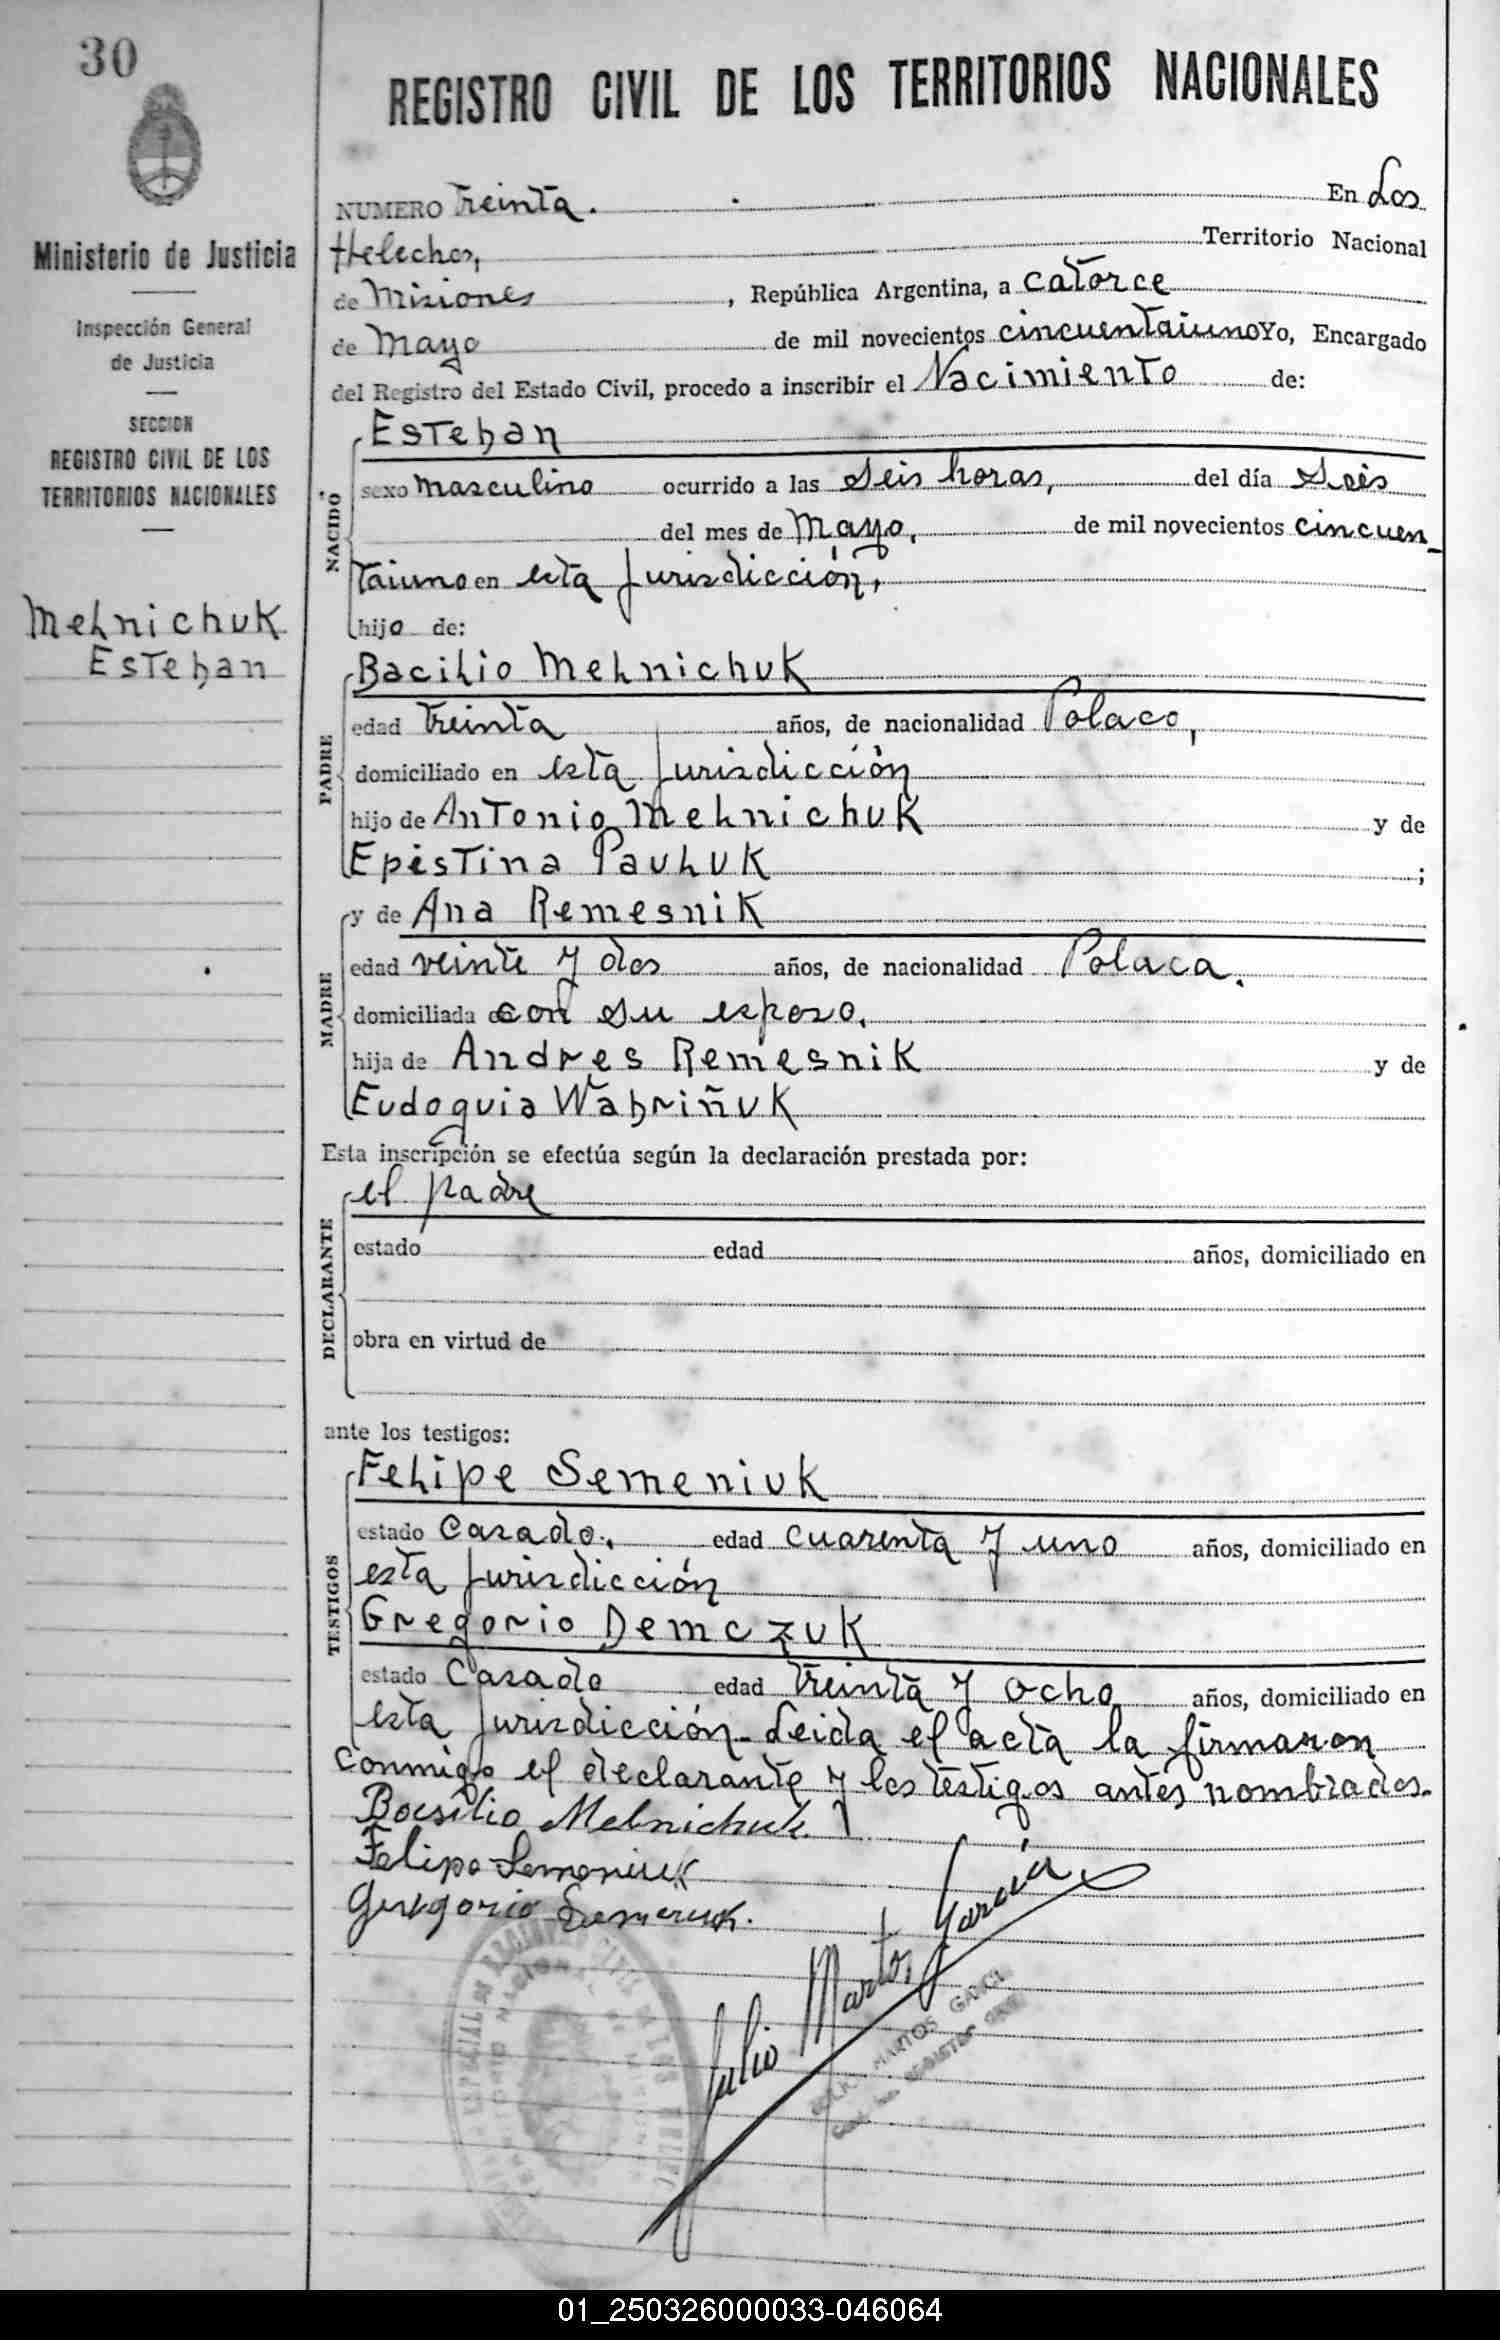 30
Ministerio de Justicia
Inspección General
de Justicia
SECCION
REGISTRO CIVIL DE LOS
TERRITORIOS NACIONALES
Melnichuk
Esteban
REGISTRO CIVIL DE LOS TERRITORIOS NACIONALES
NUMERO Treinta. En Los
Helechos, Territorio Nacional
de Misiones, República Argentina, a catorce
de Mayo de mil novecientos cincuentaiuno Yo, Encargado
del Registro del Estado Civil, procedo a inscribir el Nacimiento de:
NACIDO
Esteban
sexo masculino ocurrido a las seis horas, del día seis
del mes de Mayo, de mil novecientos cincuen-
taiuno en esta Jurisdicción,
hijo de:
PADRE
Bacilio Melnichuk
edad Treinta años, de nacionalidad Polaco,
domiciliado en esta Jurisdicción
hijo de Antonio Melnichuk y de
Epistina Pauluk ;
MADRE
y de Ana Remesnik
edad veinte y dos años, de nacionalidad Polaca.
domiciliada con su esposo,
hija de Andres Remesnik y de
Eudoquia Wabriñuk
Esta inscripción se efectúa según la declaración prestada por:
DECLARANTE
el padre
estado edad años, domiciliado en
obra en virtud de
ante los testigos:
TESTIGOS
Felipe Semeniuk
estado Casado, edad cuarenta y uno años, domiciliado en
esta Jurisdicción
Gregorio Demczuk
estado Casado edad treinta y ocho años, domiciliado en
esta Jurisdicción - Leida el acta la firmaron
conmigo el declarante y los testigos antes nombrados.
Bacilio Melnichuk
Felipe Semeniuk
Gregorio
Julio Martos García
MARTOS GARCIA
01_250326000033-046064